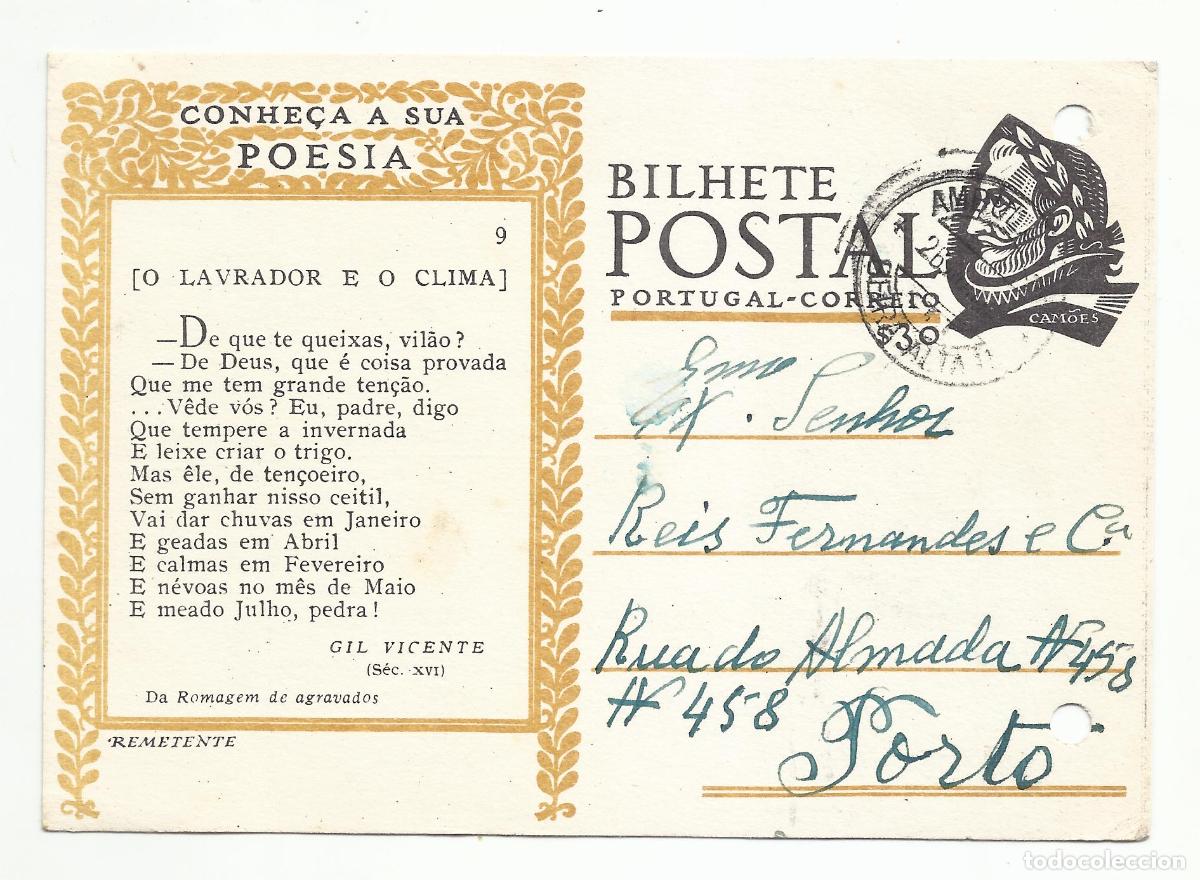 CONHEÇA A SUA
POESIA
9
[O LAVRADOR E O CLIMA]
—De que te queixas, vilão?
— De Deus, que é coisa provada
Que me tem grande tenção.
...Vêde vós? Eu, padre, digo
Que tempere a invernada
E leixe criar o trigo.
Mas êle, de tençoeiro,
Sem ganhar nisso ceitil,
Vai dar chuvas em Janeiro
E geadas em Abril
E calmas em Fevereiro
E névoas no mês de Maio
E meado Julho, pedra!
GIL VICENTE
(Séc. XVI)
Da Romagem de agravados
REMETENTE
BILHETE
POSTAL
PORTUGAL-CORREIO
$30
CAMÕES
Senhor
Reis Fernandes e Cª
Rua do Almada Nº 458
Nº 458
Porto
todocoleccion